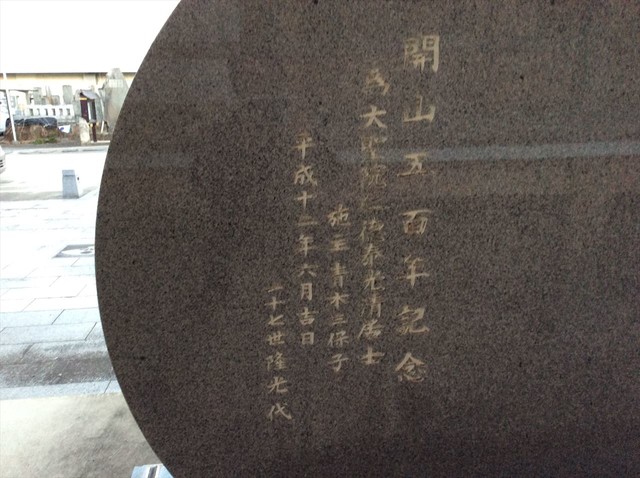 開山五百年記念
為大聖院仁俊泰光清居士
施主青木三保子
平成十二年六月吉日
二十七世隆光代